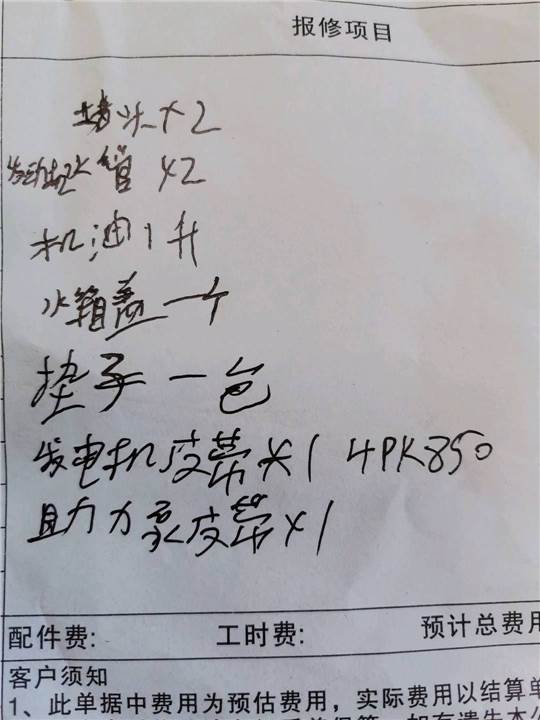 报修项目
堵头×2
发动机水管×2
机油1升
水箱盖一个
垫子一包
发电机皮带×1 4PK850
助力泵皮带×1
配件费: 工时费: 预计总费用
客户须知
1、此单据中费用为预估费用，实际费用以结算单